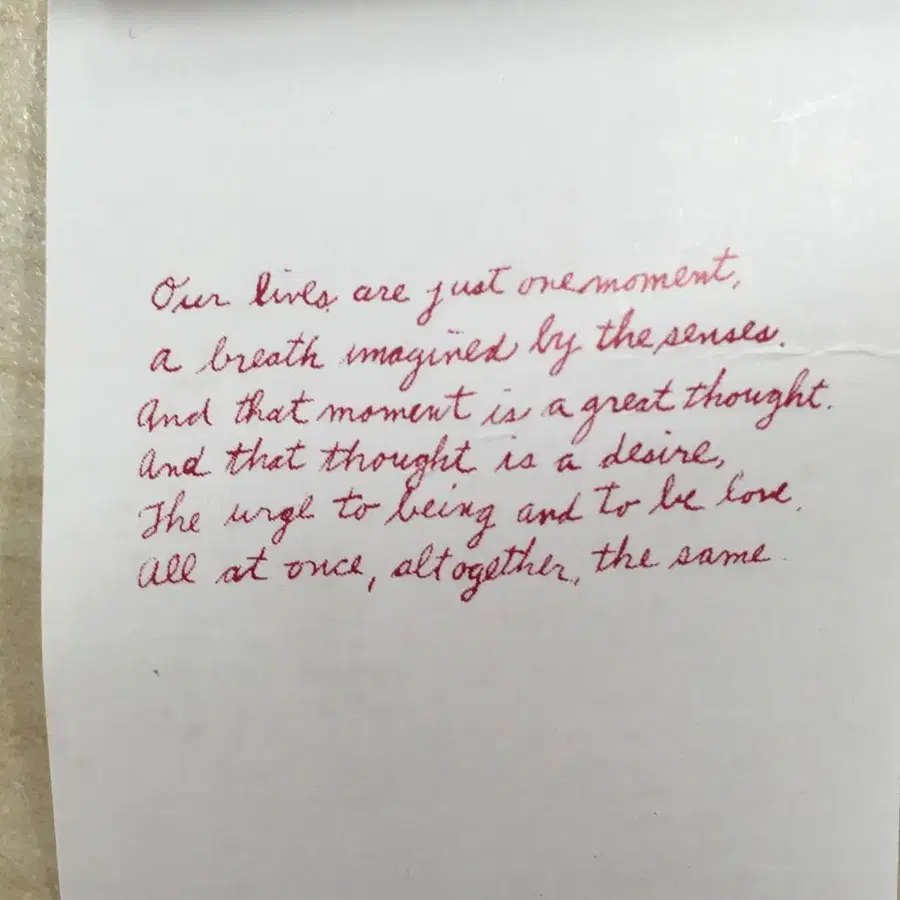 Our lives are just one moment,
a breath imagined by the senses.
And that moment is a great thought.
And that thought is a desire,
The urge to being and to be love.
All at once, altogether, the same